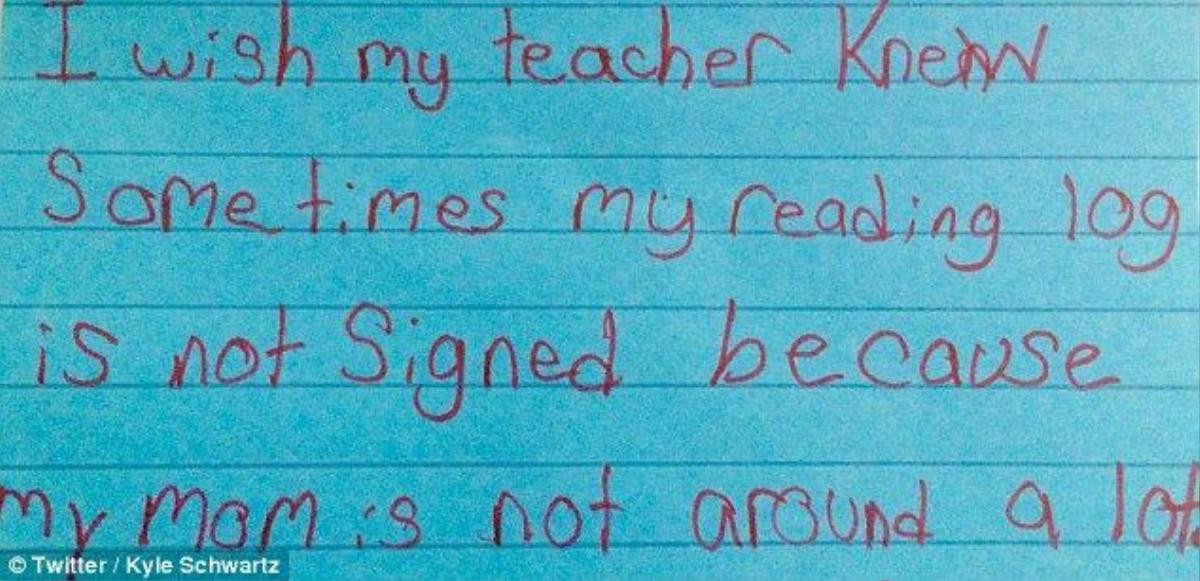 I wish my teacher Knew
Sometimes my reading log
is not Signed because
my mom is not around a lot
© Twitter / Kyle Schwartz